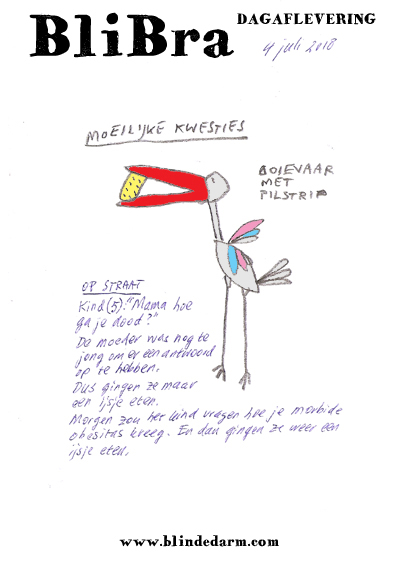 BliBra
DAGAFLEVERING
4 juli 2018
MOEILIJKE KWESTIES
OOIEVAAR
MET
PILSTRIP
OP STRAAT
Kind (5): "Mama hoe
ga je dood?"
De moeder was nog te
jong om er een antwoord
op te hebben.
Dus gingen ze maar
een ijsje eten.
Morgen zou het kind vragen hoe je morbide
obesitas kreeg. En dan gingen ze weer een
ijsje eten.
www.blindedarm.com